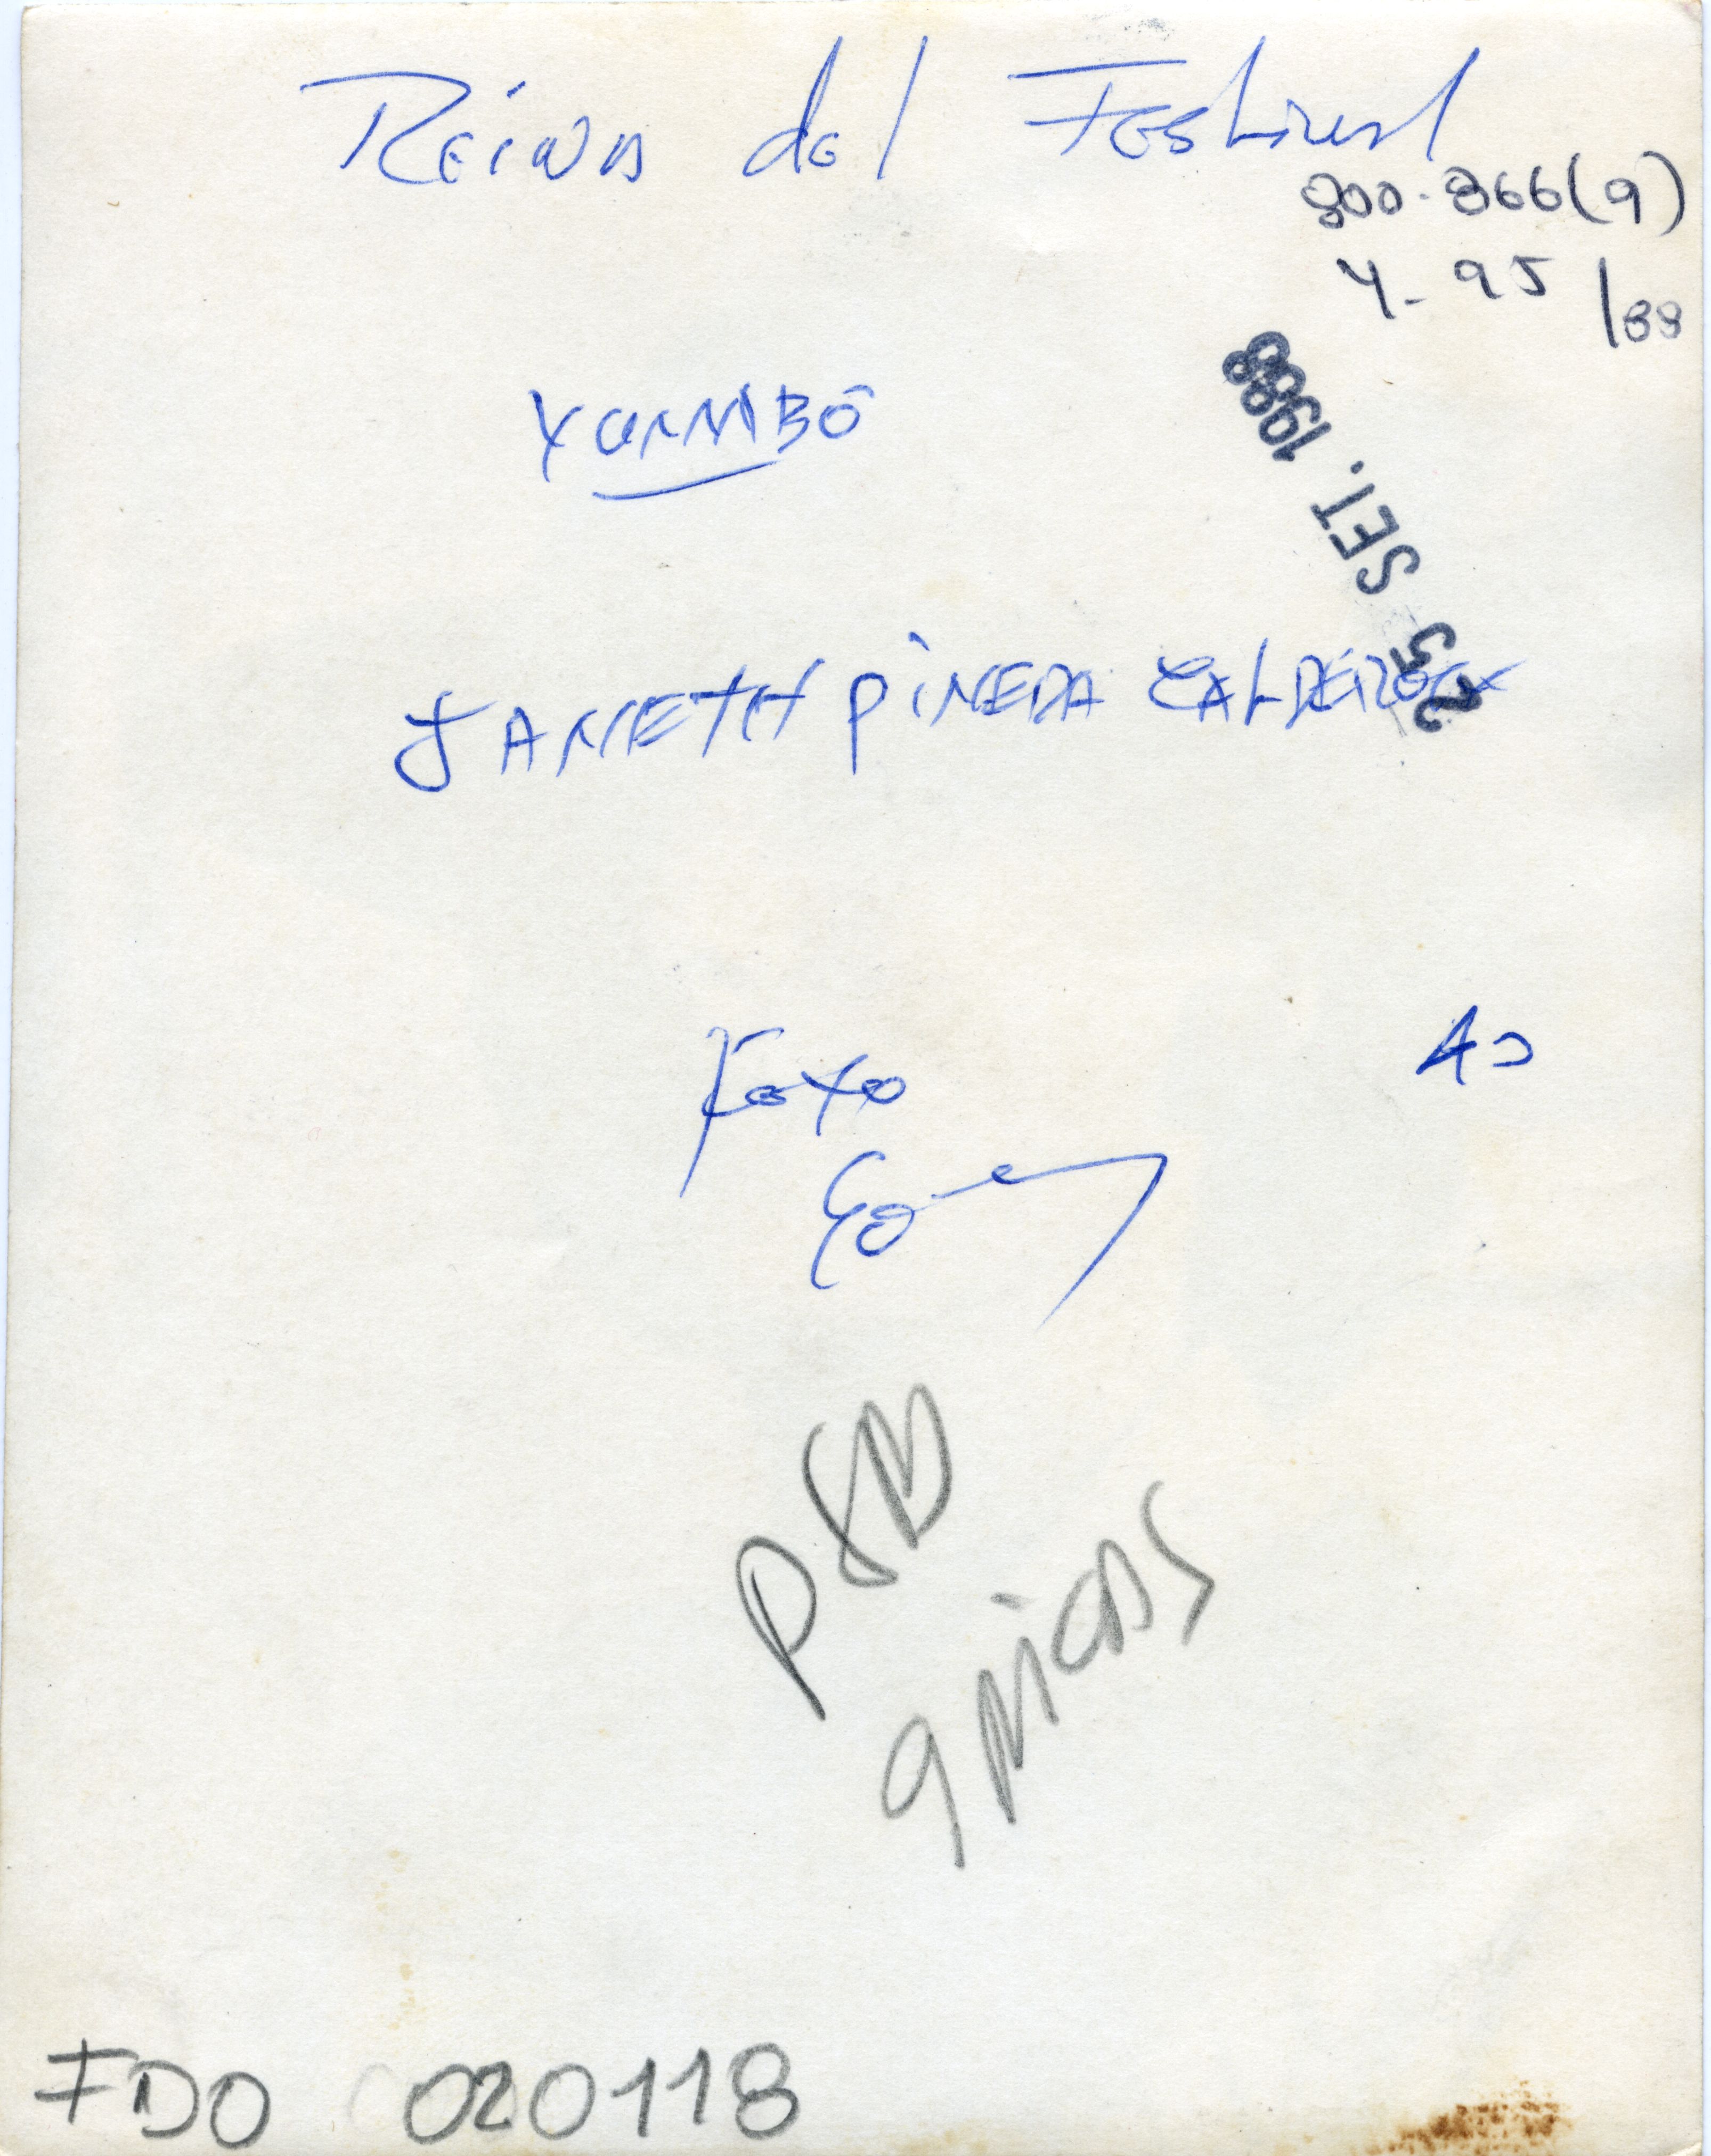 Reina del Festival
800-866(9)
4-95/88
YUMBO
25 SET. 1988
JANETH PINEDA CALDERON
Foto
AD
9 picas
FDO 020118